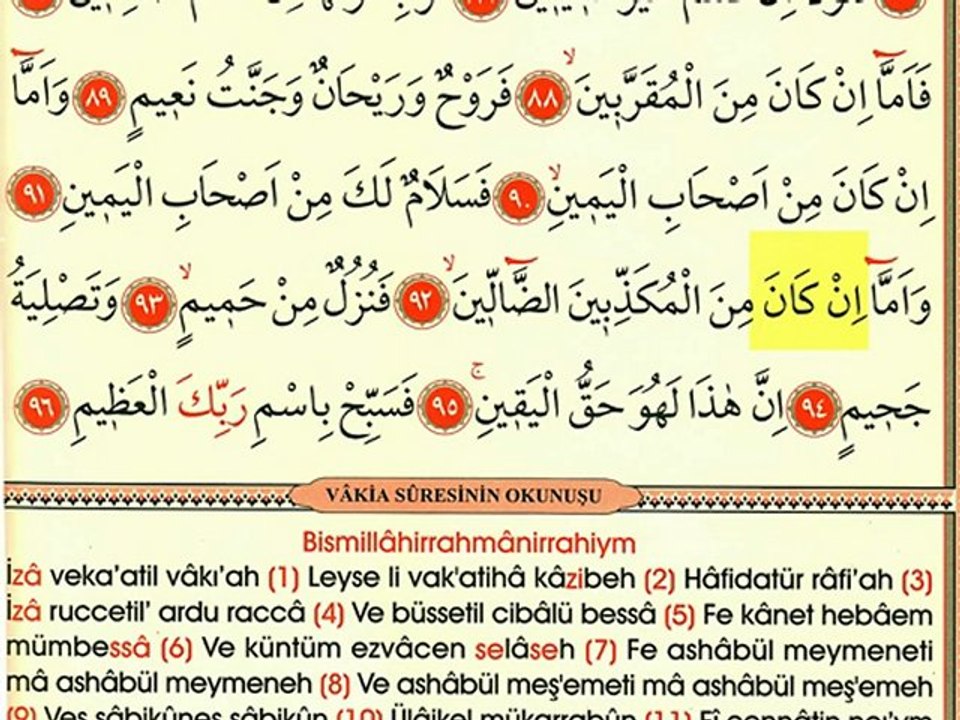 فَاَمَّٓا اِنْ كَانَ مِنَ الْمُقَرَّب۪ينَۙ ﴿٨٨﴾ فَرَوْحٌ وَرَيْحَانٌ وَجَنَّتُ نَع۪يمٍ ﴿٨٩﴾ وَاَمَّٓا
اِنْ كَانَ مِنْ اَصْحَابِ الْيَم۪ينِۙ ﴿٩٠﴾ فَسَلَامٌ لَكَ مِنْ اَصْحَابِ الْيَم۪ينِ ﴿٩١﴾
وَاَمَّٓا اِنْ كَانَ مِنَ الْمُكَذِّب۪ينَ الضَّٓالّ۪ينَۙ ﴿٩٢﴾ فَنُزُلٌ مِنْ حَم۪يمٍۙ ﴿٩٣﴾ وَتَصْلِيَةُ
جَح۪يمٍ ﴿٩٤﴾ اِنَّ هٰذَا لَهُوَ حَقُّ الْيَق۪ينِۚ ﴿٩٥﴾ فَسَبِّحْ بِاسْمِ رَبِّكَ الْعَظ۪يمِ ﴿٩٦﴾
VÂKİA SÛRESİNİN OKUNUŞU
Bismillâhirrahmânirrahiym
İzâ veka'atil vâkı'ah (1) Leyse li vak'atihâ kâzibeh (2) Hâfidatür râfi'ah (3)
İzâ ruccetil' ardu raccâ (4) Ve büssetil cibâlü bessâ (5) Fe kânet hebâem
mümbessâ (6) Ve küntüm ezvâcen selâseh (7) Fe ashâbül meymeneti
mâ ashâbül meymeneh (8) Ve ashâbül meş'emeti mâ ashâbül meş'emeh
(9) Ves sâbikûnes sâbikûn (10) Ülâikel mükarrabûn (11) Fî cennâtin